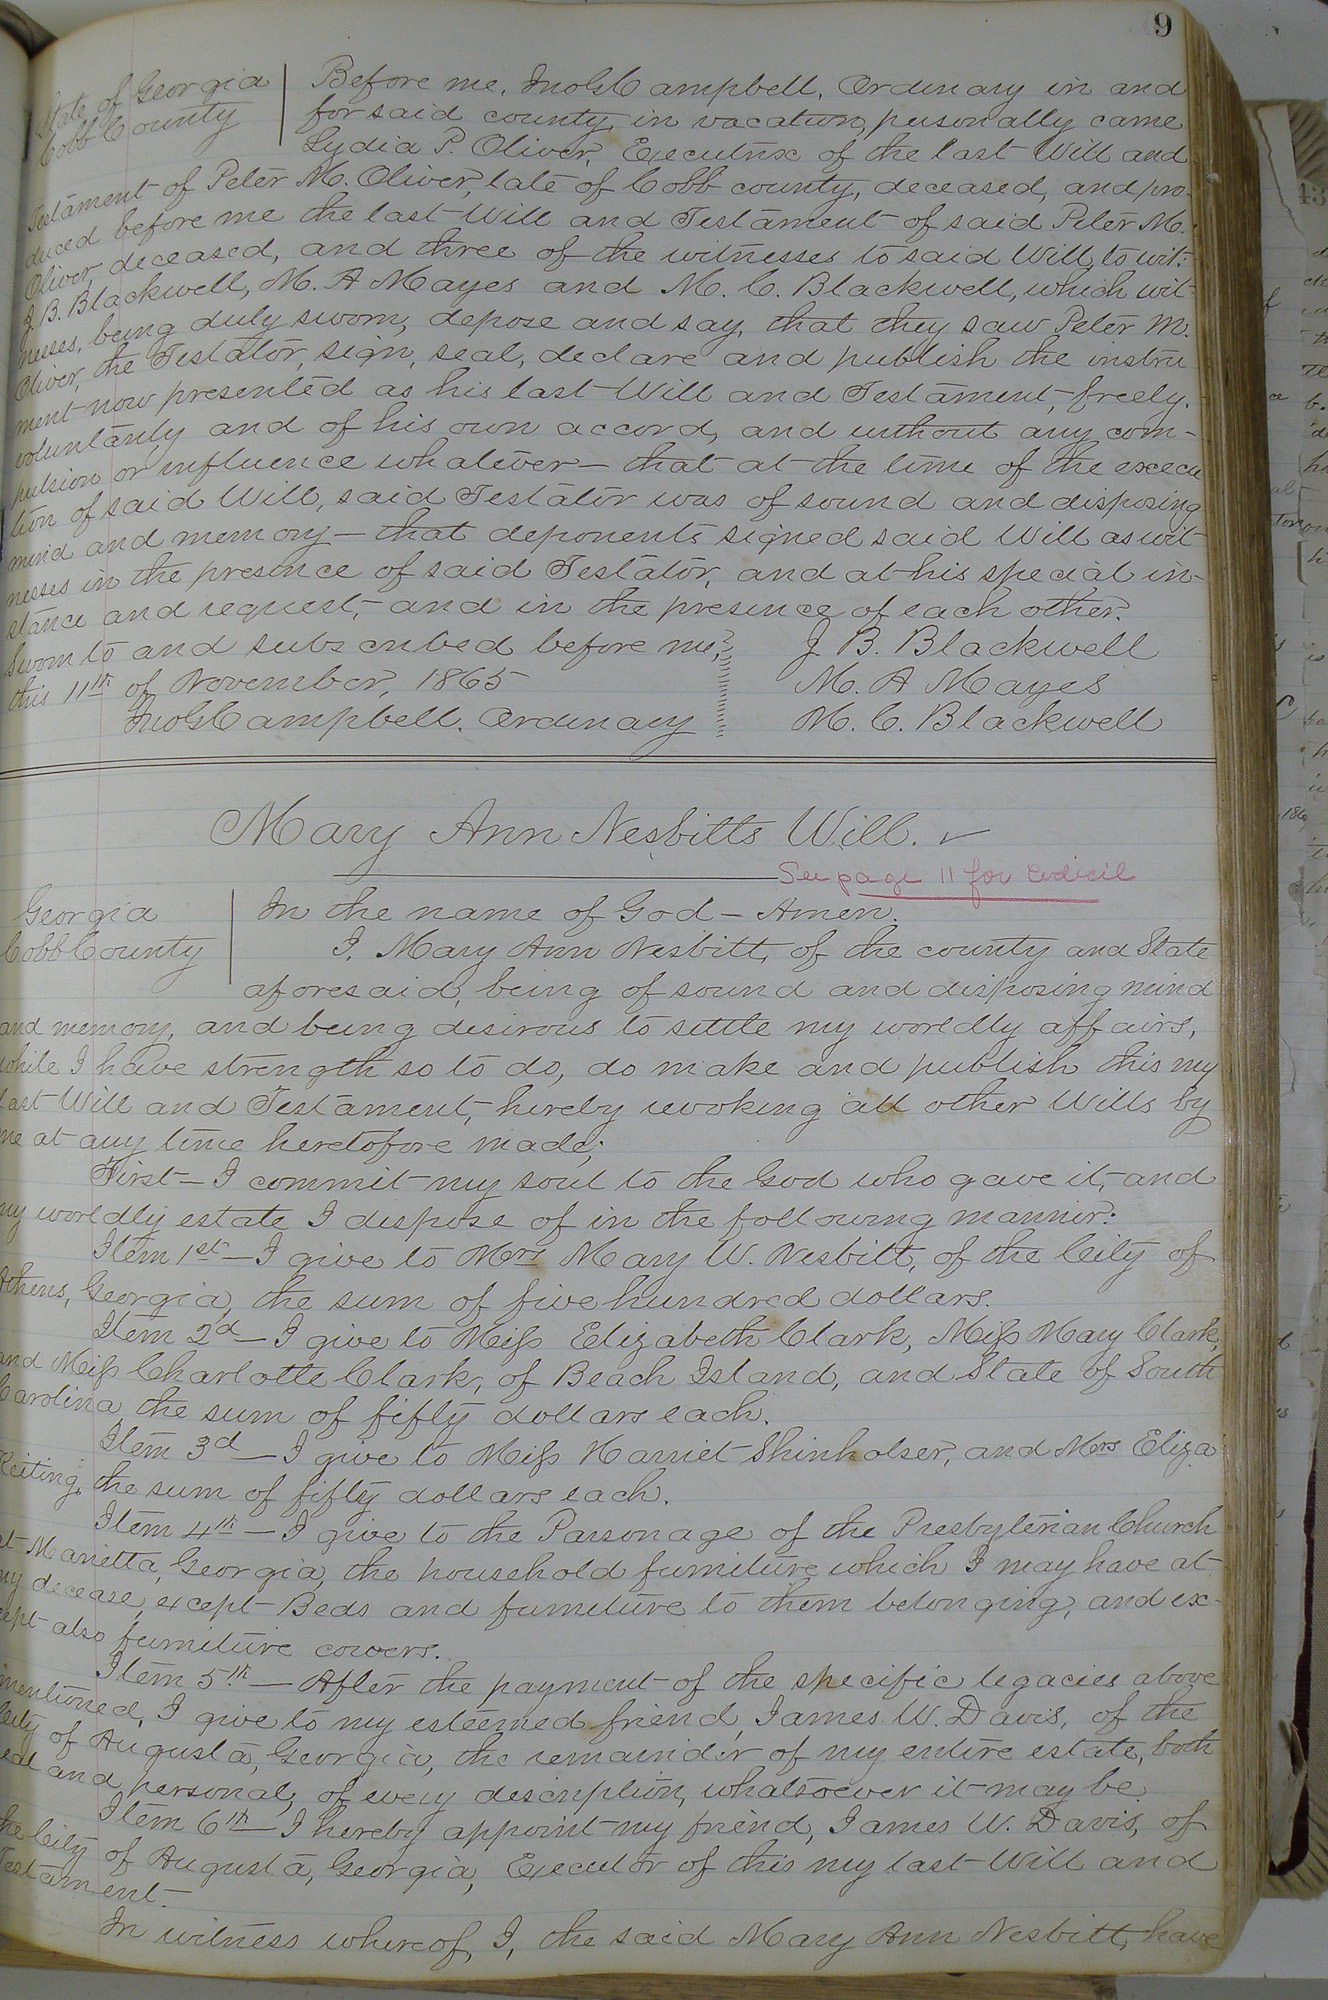 9
State of Georgia
Cobb County
Before me, Jno G Campbell, Ordinary in and
for said county, in vacation, personally came
Lydia P. Oliver, Executrix of the last Will and
Testament of Peter M. Oliver, late of Cobb county, deceased, and pro-
duced before me the last Will and Testament of said Peter M.
Oliver, deceased, and three of the witnesses to said Will, to wit:
J. B. Blackwell, M. A Mayes and M. C. Blackwell, which wit-
nesses, being duly sworn, depose and say, that they saw Peter M.
Oliver, the Testator, sign, seal, declare and publish the instru
ment now presented as his last Will and Testament, freely,
voluntarily and of his own accord, and without any com-
pulsion or influence whatever — that at the time of the execu
tion of said Will, said Testator was of sound and disposing
mind and memory — that deponents signed said Will as wit
nesses in the presence of said Testator, and at his special in-
stance and request, and in the presence of each other.
Sworn to and subscribed before me,
this 11th of November, 1865
Jno G Campbell. Ordinary
J B. Blackwell
M. A Mayes
M. C. Blackwell
Mary Ann Nesbitts Will. ✓
See page 11 for codicil
Georgia
Cobb County
In the name of God — Amen.
I, Mary Ann Nesbitt, of the county and State
aforesaid, being of sound and disposing mind
and memory, and being desirous to settle my worldly affairs,
while I have strength so to do, do make and publish this my
last Will and Testament, hereby revoking all other Wills by
me at any time heretofore made;
First — I commit my soul to the God who gave it, and
my worldly estate I dispose of in the following manner:
Item 1st — I give to Mrs Mary W. Nesbitt, of the City of
Athens, Georgia, the sum of five hundred dollars.
Item 2d — I give to Miss Elizabeth Clark, Miss Mary Clark,
and Miss Charlotte Clark, of Beach Island, and State of South
Carolina, the sum of fifty dollars each.
Item 3d — I give to Miss Harriet Shinholser, and Mrs Eliza
Keiting, the sum of fifty dollars each.
Item 4th — I give to the Parsonage of the Presbyterian Church
at Marietta, Georgia, the household furniture which I may have at
my decease, except Beds and furniture to them belonging, and ex-
cept also furniture covers.
Item 5th — After the payment of the specific legacies above
mentioned, I give to my esteemed friend, James W. Davis, of the
City of Augusta, Georgia, the remainder of my entire estate, both
real and personal, of every description, whatsoever it may be.
Item 6th — I hereby appoint my friend, James W. Davis, of
the City of Augusta, Georgia, Executor of this my last Will and
Testament.
In witness whereof, I, the said Mary Ann Nesbitt, have